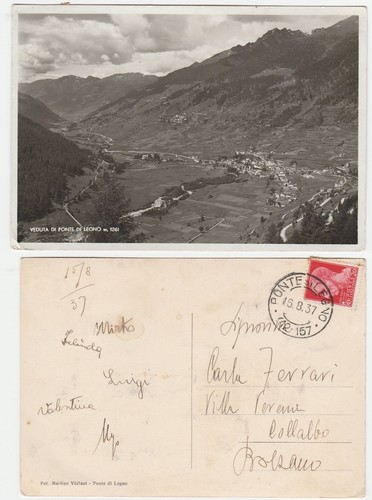 VEDUTA DI PONTE DI LEGNO m. 1261
15/8
37
Mirto
Luigi
Valentina
Fot. Martino Vielmi - Ponte di Legno
PONTE DI LEGNO
16.8.37
(42-157)
Signorina
Carla Ferrari
Villa Verena
Collalbo
Bolzano